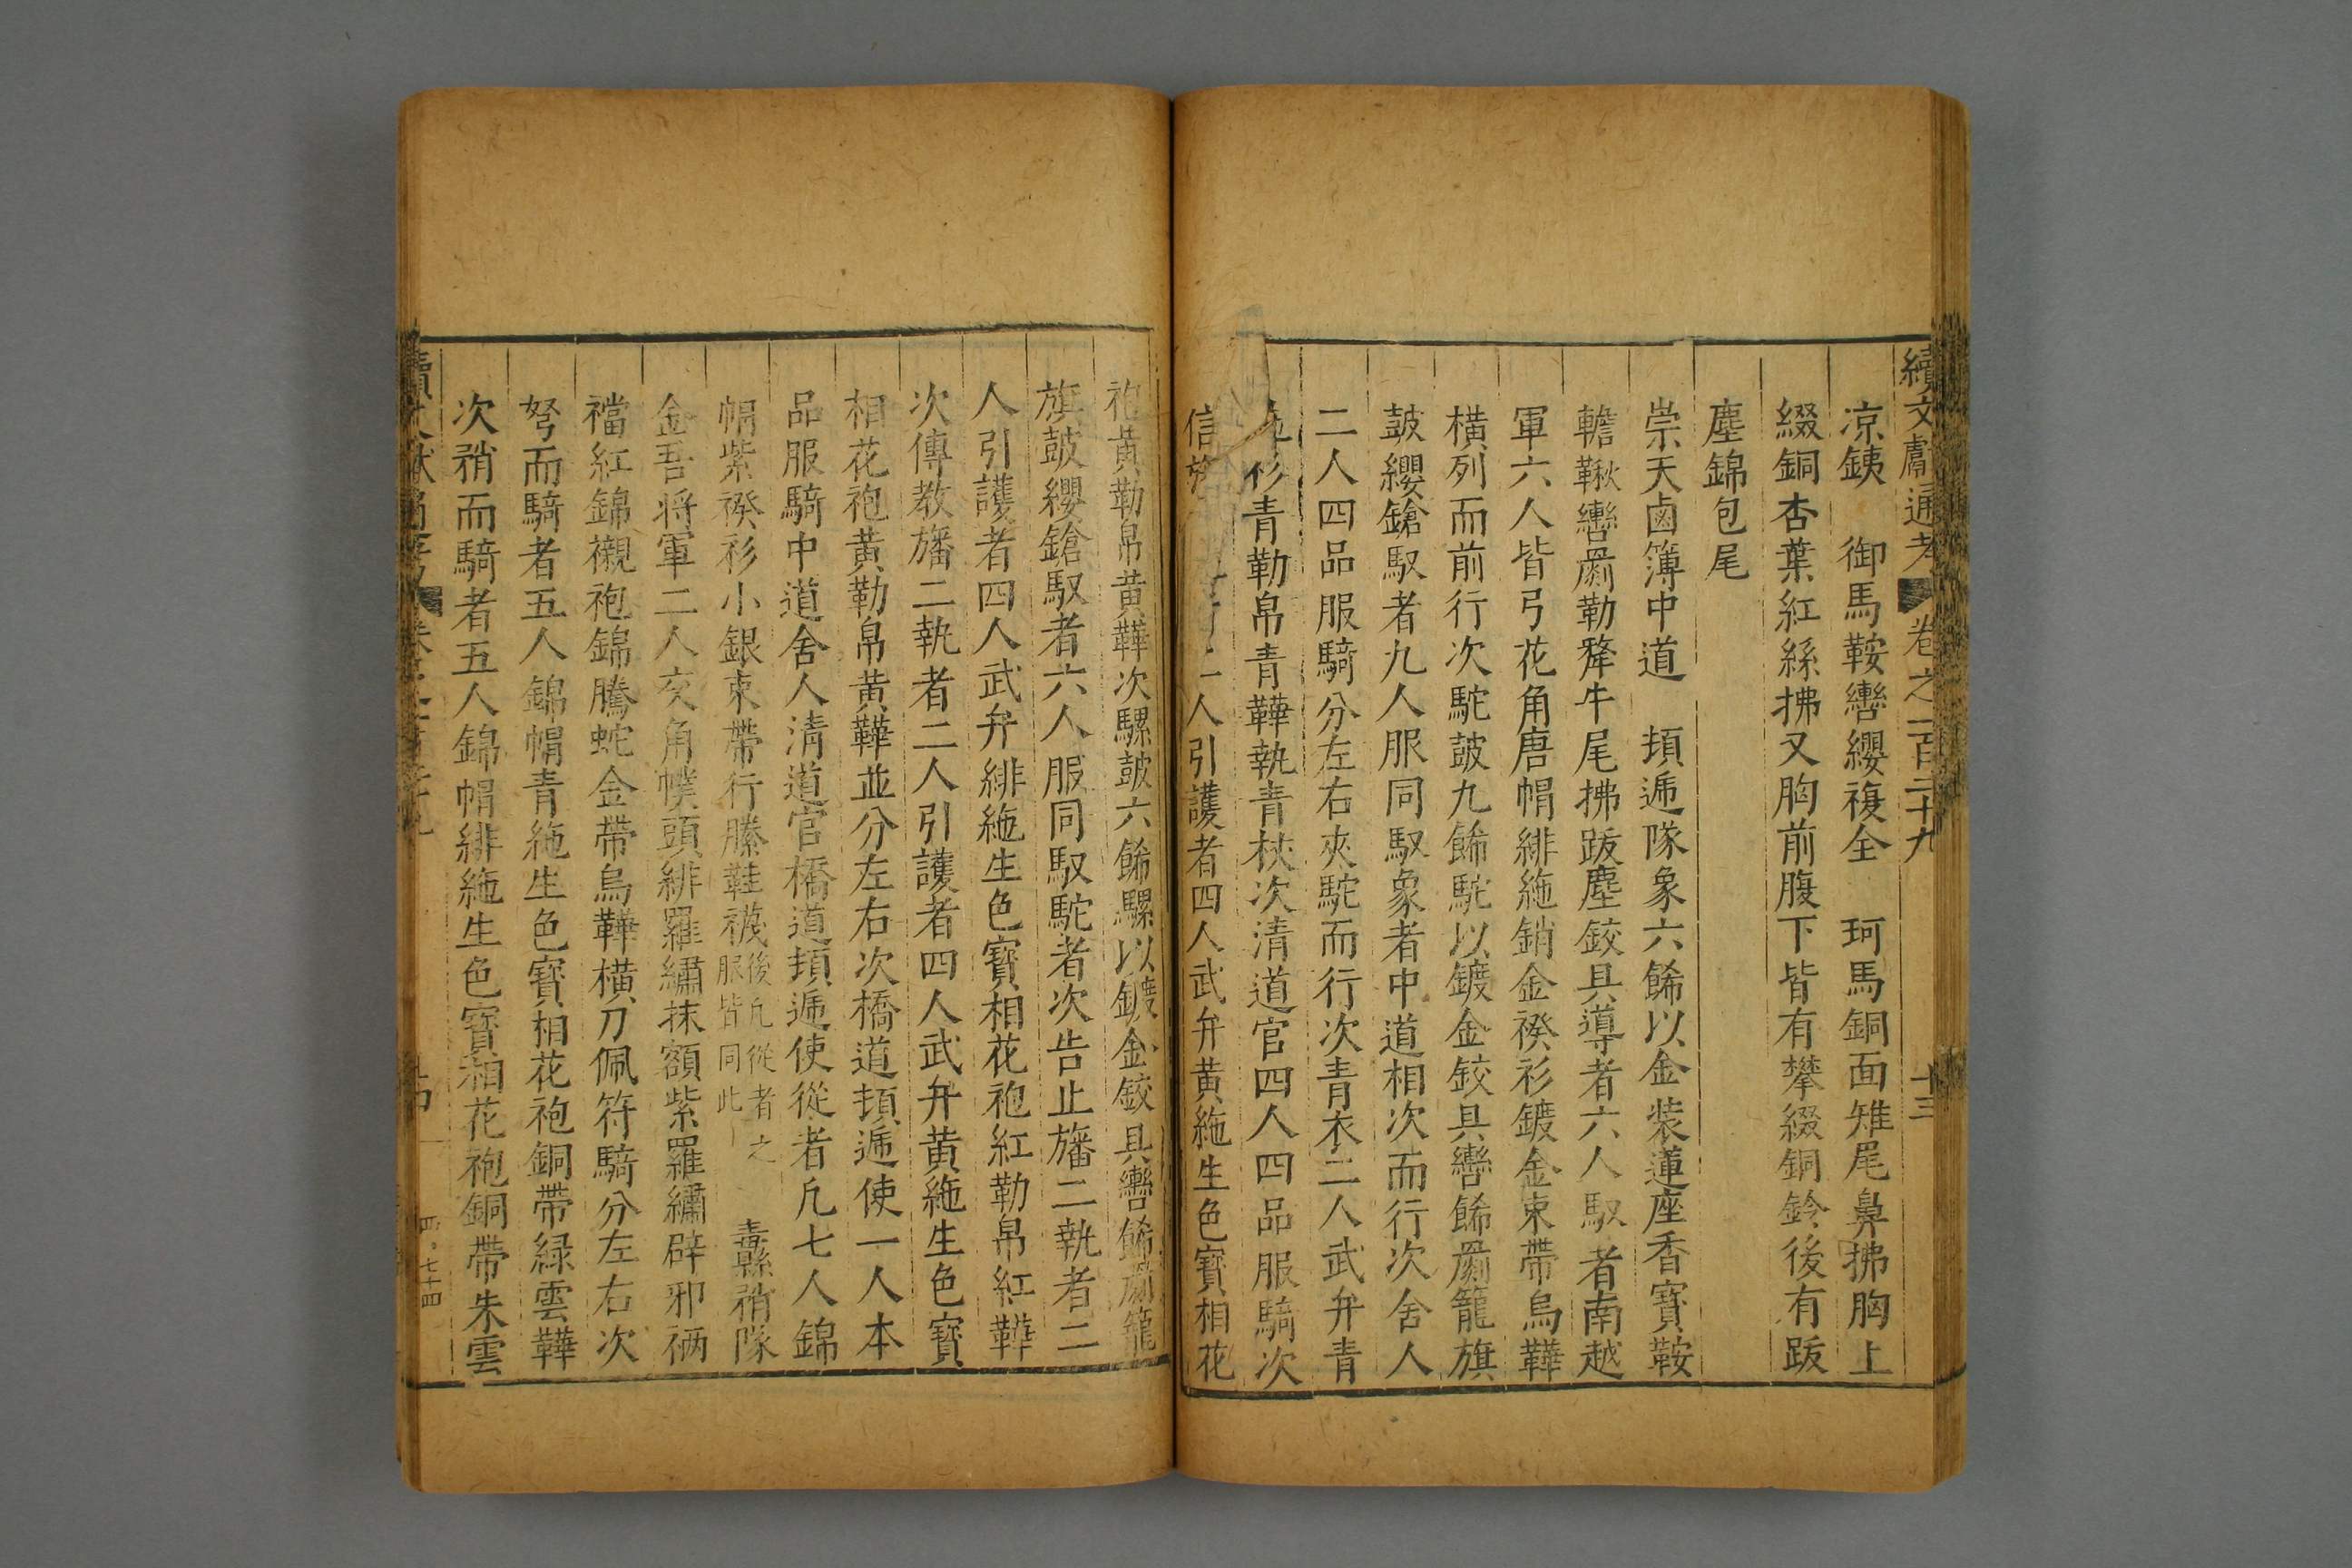 續文獻通考 卷之一百二十九 十三
凉鉄 御馬鞍轡纓複全 珂馬銅面雉尾鼻拂胸上
綴銅杏葉紅絲拂又胸前腹下皆有攀綴銅鈴後有跋
塵錦包尾
崇天鹵簿中道 頓遞隊象六餙以金装蓮座香寳鞍
韂鞦轡罽勒犛牛尾拂跋塵鉸具導者六人馭者南越
軍六人皆弓花角唐帽緋絁銷金䙆衫鍍金束帶烏鞾
橫列而前行次駝皷九餙駝以鍍金鉸具轡餙罽籠旗
皷纓鎗馭者九人服同馭象者中道相次而行次舍人
二人四品服騎分左右夾駝而行次青衣二人武弁青
衫青勒帛青鞾執青杖次清道官四人四品服騎次
信 二人引護者四人武弁黄絁生色寳相花
袍黄勒帛黄鞾次騾皷六餙騾以鍍金鉸具轡餙罽籠
旗皷纓鎗馭者六人服同馭駝者次告止旛二執者二
人引護者四人武弁緋絁生色寳相花袍紅勒帛紅鞾
次傳教旛二執者二人引護者四人武弁黄絁生色寳
相花袍黄勒帛黄鞾並分左右次橋道頓遞使一人本
品服騎中道舍人清道官橋道頓遞使從者凢七人錦
帽紫䙆衫小銀束帶行縢鞋襪後凢從者之服皆同此 纛矟隊
金吾将軍二人交角幞頭緋羅繡抹額紫羅繡辟邪裲
襠紅錦襯袍錦騰蛇金帶烏鞾橫刀佩符騎分左右次
弩而騎者五人錦帽青絁生色寳相花袍銅帶緑雲鞾
次矟而騎者五人錦帽緋絁生色寳相花袍銅帶朱雲
四·七十四